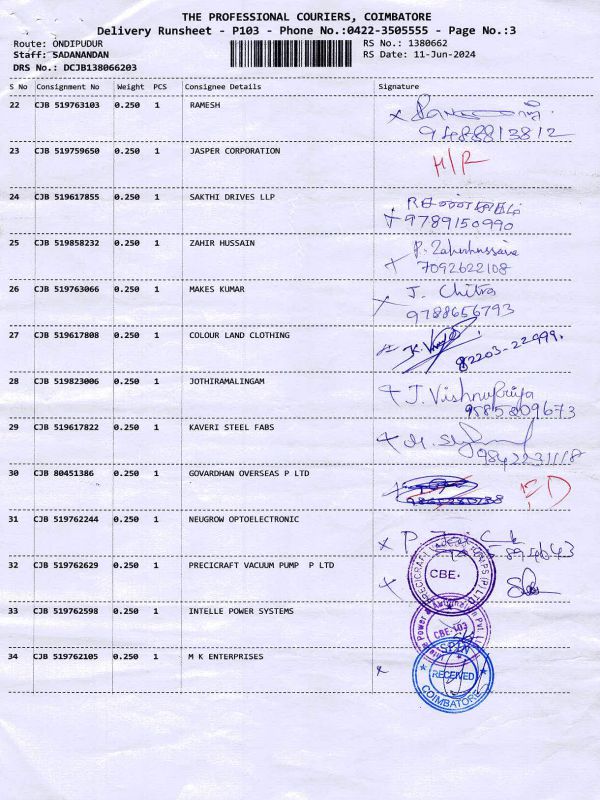 THE PROFESSIONAL COURIERS, COIMBATORE
Delivery Runsheet - P103 - Phone No.:0422-3505555 - Page No.:3
Route: ONDIPUDUR RS No.: 1380662
Staff: SADANANDAN RS Date: 11-Jun-2024
DRS No.: DCJB138066203
S No Consignment No Weight PCS Consignee Details Signature
22 CJB 519763103 0.250 1 RAMESH
9488813812
23 CJB 519759650 0.250 1 JASPER CORPORATION H/R
24 CJB 519617855 0.250 1 SAKTHI DRIVES LLP
9789150990
25 CJB 519858232 0.250 1 ZAHIR HUSSAIN P. Zaheerhussain
7092622108
26 CJB 519763066 0.250 1 MAKES KUMAR J. Chitra
9788656793
27 CJB 519617808 0.250 1 COLOUR LAND CLOTHING
82203-22999.
28 CJB 519823006 0.250 1 JOTHIRAMALINGAM J. Vishnupriya
9585809673
29 CJB 519617822 0.250 1 KAVERI STEEL FABS
30 CJB 80451386 0.250 1 GOVARDHAN OVERSEAS P LTD
31 CJB 519762244 0.250 1 NEUGROW OPTOELECTRONIC
32 CJB 519762629 0.250 1 PRECICRAFT VACUUM PUMP P LTD CBE.
33 CJB 519762598 0.250 1 INTELLE POWER SYSTEMS CBE-103
34 CJB 519762105 0.250 1 M K ENTERPRISES SPIN
RECEIVED
COIMBATORE